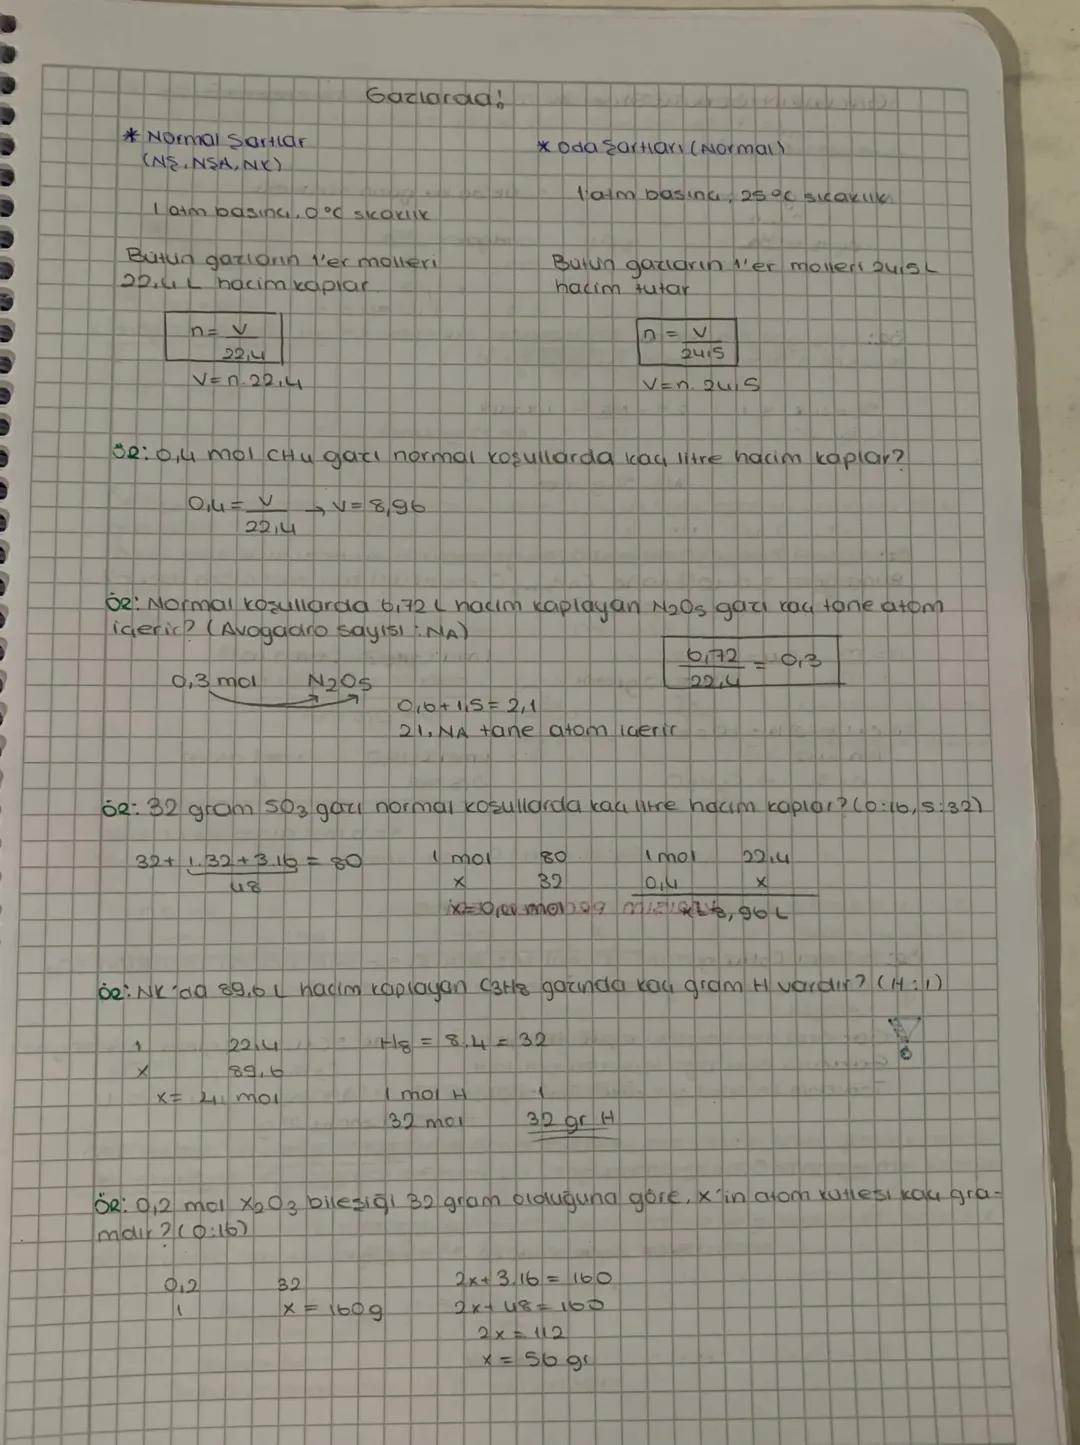 Gazlarda:
* Normal Şartlar
(NŞ, NŞA, NK)
1 atm basıncı, 0°C sıcaklık
Bütün gazların 1'er molleri
22,4 L hacim kaplar
n = V / 22,4
V = n. 22,4
* Oda Şartları (Normal)
1 atm basıncı, 25°C sıcaklık
Bütün gazların 1'er molleri 24,5 L
hacim tutar
n = V / 24,5
V = n. 24,5
ÖR: 0,4 mol CH4 gazı normal koşullarda kaç litre hacim kaplar?
0,4 = V / 22,4 → V = 8,96
ÖR: Normal koşullarda 6,72 L hacim kaplayan N2O5 gazı kaç tane atom
içerir? (Avogadro sayısı : NA)
6,72 / 22,4 = 0,3
0,3 mol N2O5
0,6 + 1,5 = 2,1
21. NA tane atom içerir
ÖR: 32 gram SO3 gazı normal koşullarda kaç litre hacim kaplar? (O:16, S:32)
32 + 1.32 + 3.16 = 80
48
1 mol 80
x 32
1 mol 22,4
0,4 x
8,96 L
ÖR: NK'da 89,6 L hacim kaplayan C3H8 gazında kaç gram H vardır? (H:1)
1 22,4
x 89,6
x = 4 mol
H8 = 8.4 = 32
1 mol H 1
32 mol 32 gr H
ÖR: 0,2 mol X2O3 bileşiği 32 gram olduğuna göre, X'in atom kütlesi kaç gra-
mdır? (O:16)
0,2 32
1 x = 160g
2x + 3.16 = 160
2x + 48 = 160
2x = 112
x = 56 gr